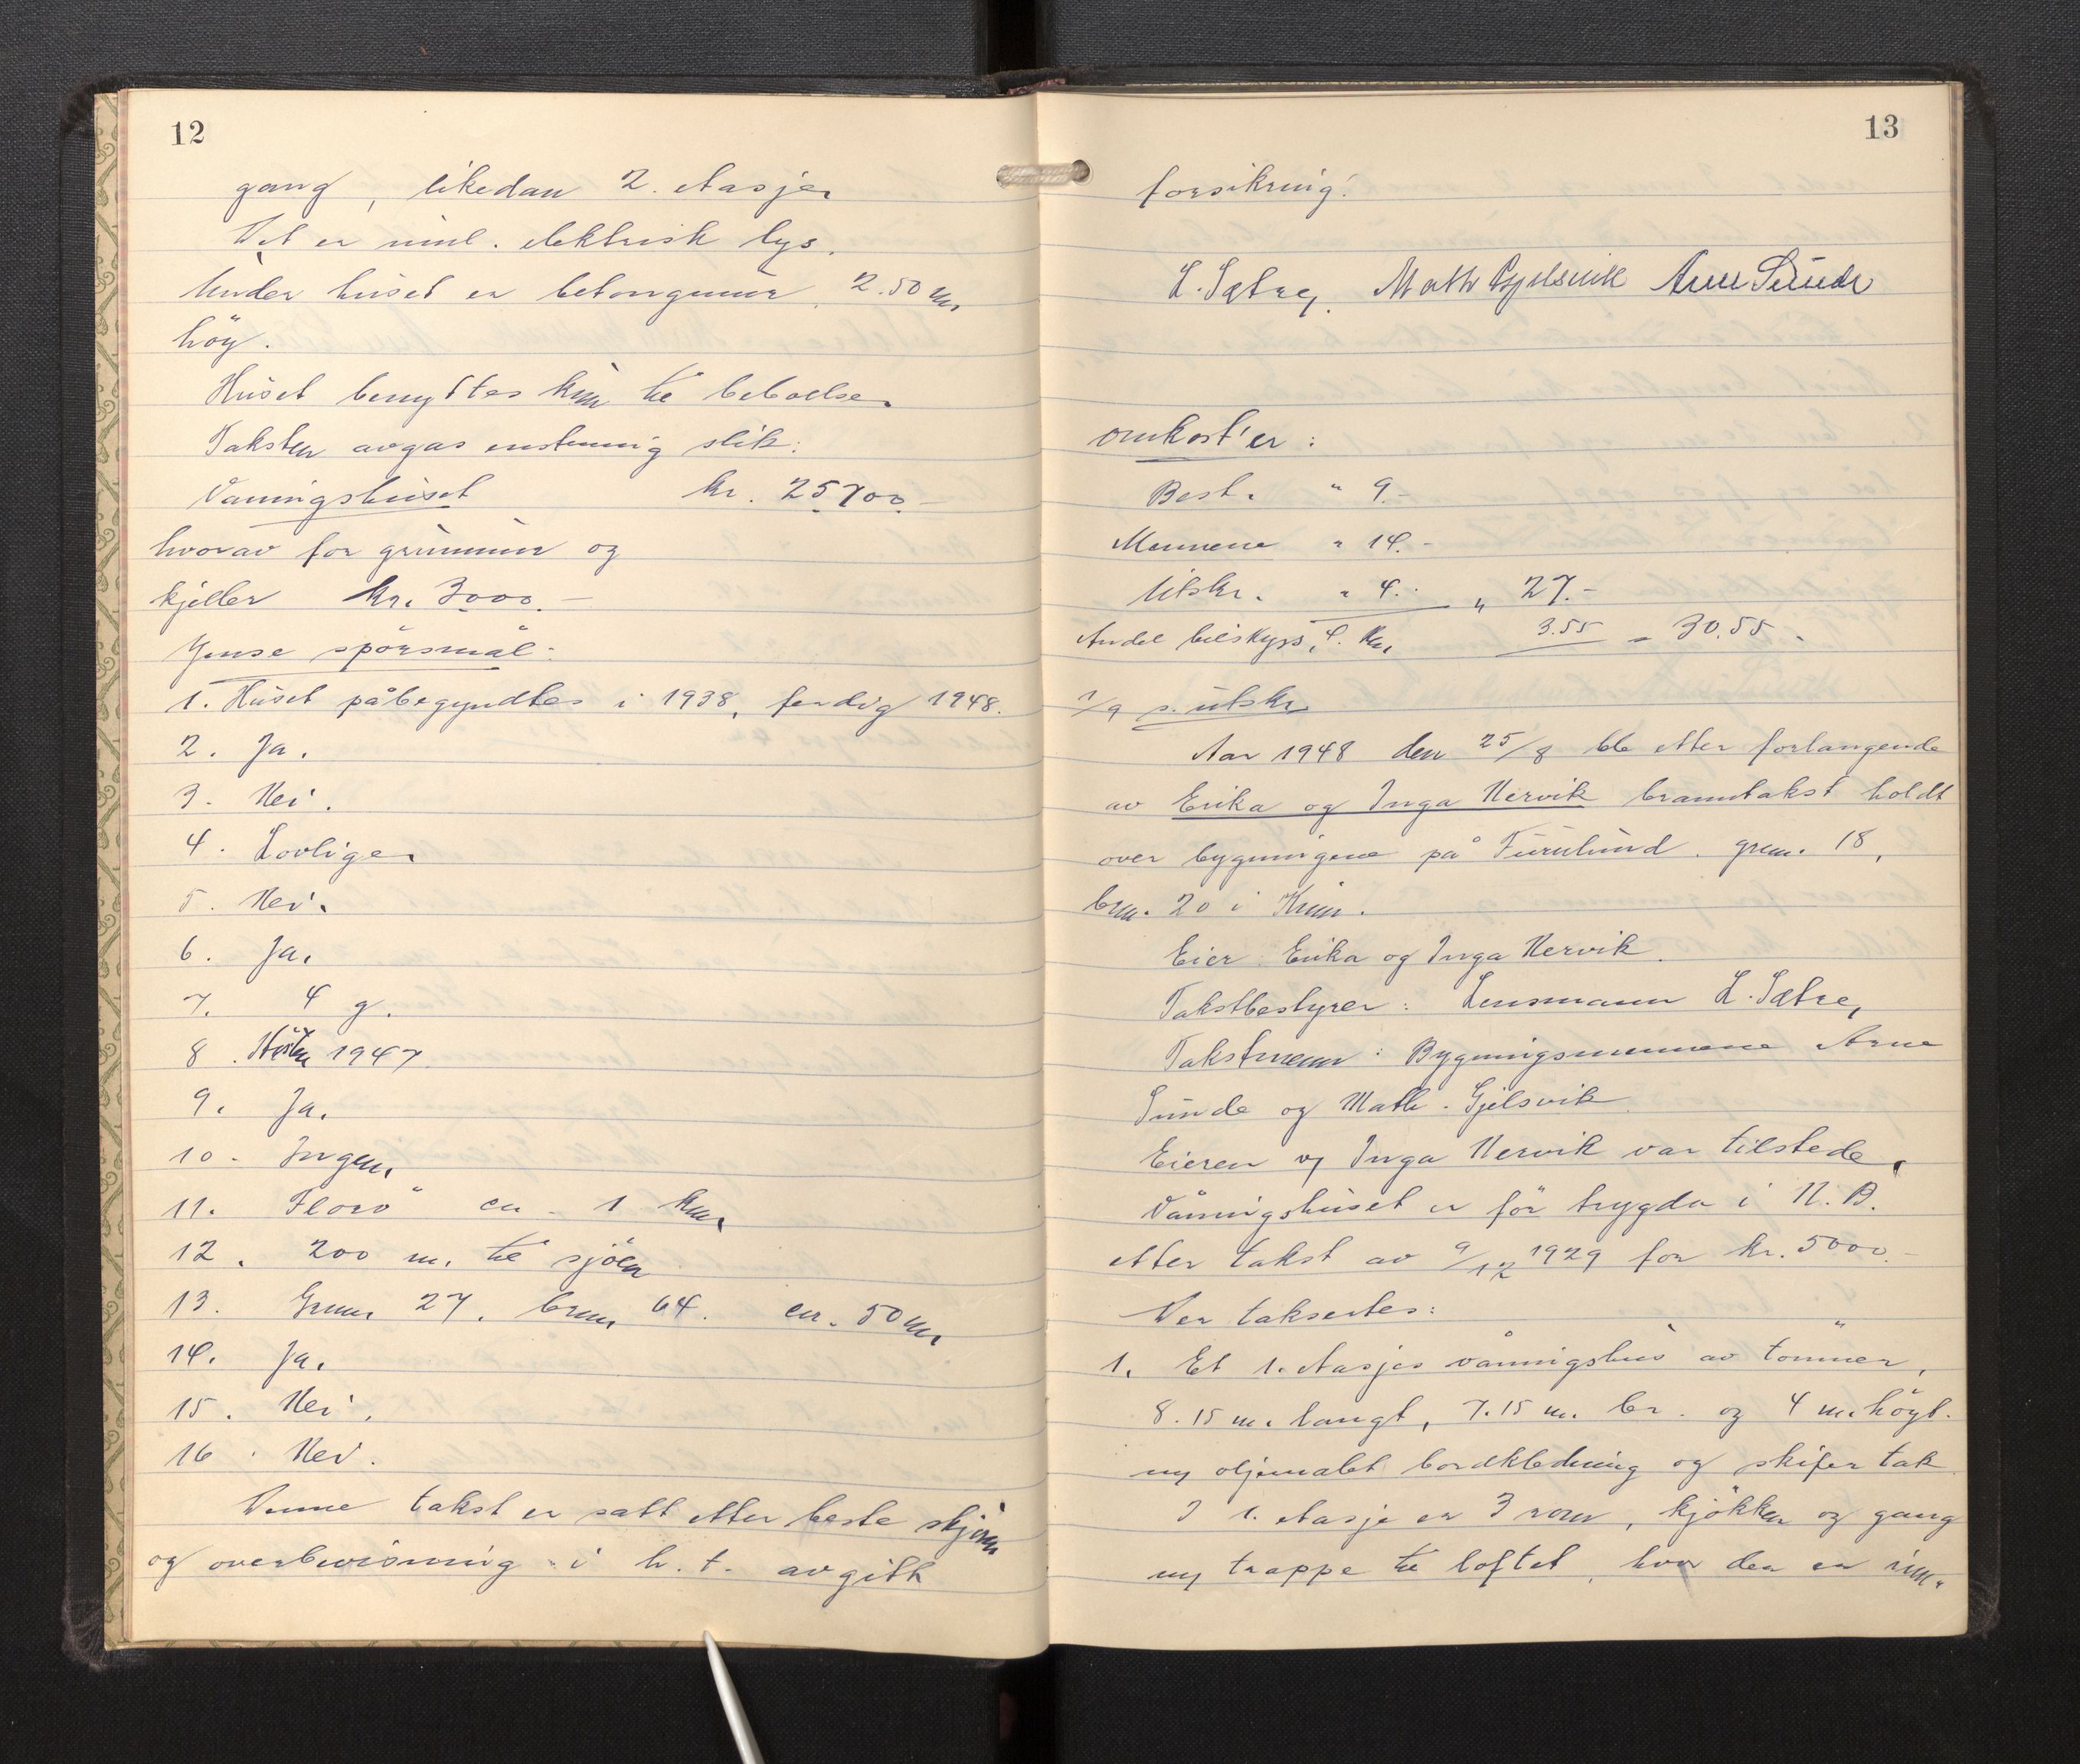 12
gang, likedan 2. etasje.
Det er innl. elektrisk lys.
Under huset er betongmur 2.50 m.
höy.
Huset benyttes kun til beboelse.
Taksten avgas enstemmig slik:
Vaningshuset kr. 25700.-
hvorav for grunnmur og
kjeller kr. 3000.-
Gense spörsmål:
1. Huset påbegyndtes i 1938, ferdig 1948.
2. Ja.
3. Nei.
4. Lovlige.
5. Nei.
6. Ja.
7. 4 g.
8. Hösten 1947
9. Ja.
10. Ingen.
11. Florö ca. 1 km.
12. 200 m. til sjöen
13. Gnnr. 27. brnr. 64. ca. 50 m.
14. Ja.
15. Nei.
16. Nei.
Denne takst er satt etter beste skjönn
og overbevisning i h.t. avgitt
13
forsikring.
L. Sætre. Math Gjelsvik Arne Sunde
Omkost'er:
Best. " 9.-
Mennene " 14.-
Utskr. " 4.- " 27.-
Andel bilskyss, 4. km. 3.55 = 30.55.
1/9 s. utskr.
Aar 1948 den 25/8 ble etter forlangende
av Erika og Inga Nervik branntakst holdt
over bygningene på Furulund. gnr. 18,
bnr. 20 i Kinn.
Eier: Erika og Inga Nervik.
Takstbestyrer: Lensmann L. Sætre,
Takstmenn: Bygningsmennene Arne
Sunde og Math. Gjelsvik.
Eieren v/ Inga Nervik var tilstede.
Våningshuset er för trygda i N.B.
etter takst av 9/12 1929 for kr. 5000.-
Der takseres:
1. Et 1. etasjes våningshus av tömmer,
8.15 m. langt, 7.15 m. br. og 4 m. höyt.
ny oljemalet bordkledning og skifer tak.
I 1. etasje er 3 rom, kjökken og gang
ny trappe til loftet, hvor der er inn-